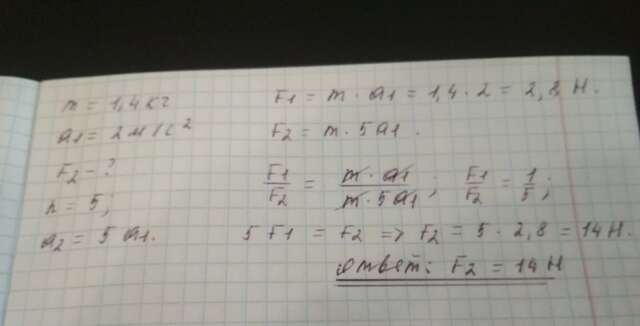 m = 1,4 кг
a1 = 2 м/с²
F2 - ?
n = 5;
a2 = 5 a1.
F1 = m · a1 = 1,4 · 2 = 2,8 Н.
F2 = m · 5a1.
F1/F2 = m · a1/m · 5a1; F1/F2 = 1/5;
5 F1 = F2 => F2 = 5 · 2,8 = 14 Н.
ответ: F2 = 14 Н